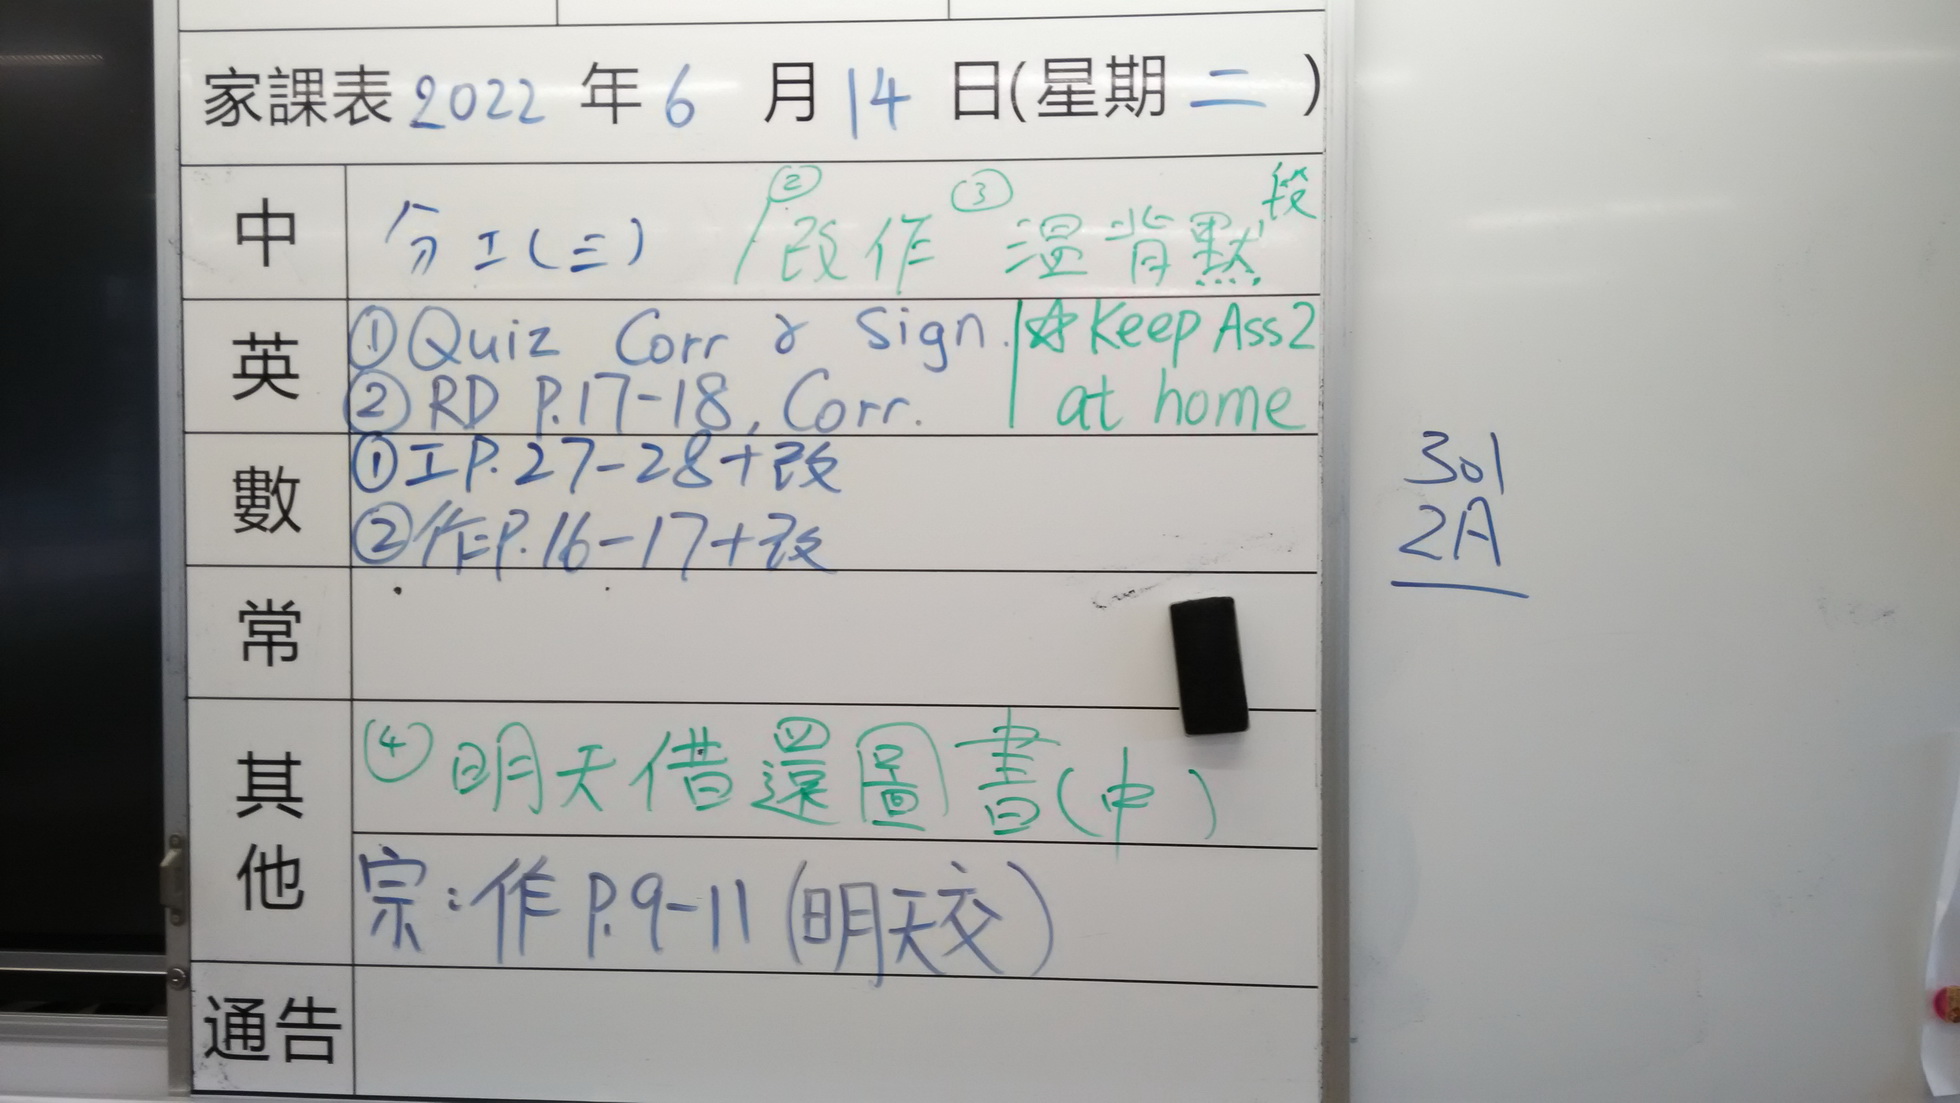 家課表 2022 年 6 月 14 日(星期 二 )
中 分工(三) / ②改作 ③溫背默段
英 ①Quiz Corr & Sign. | ☆Keep Ass2
②RD P.17-18, Corr. | at home
數 ①工P.27-28+改
②作P.16-17+改
常
其他 ④明天借還圖書(中)
宗:作P.9-11(明天交)
通告
301
2A